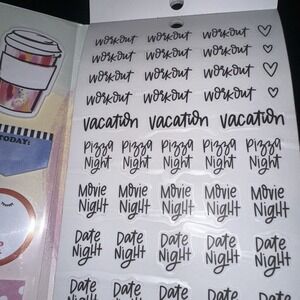 workout workout workout
workout workout workout
workout workout workout
workout workout workout
vacation vacation vacation
Pizza Pizza Pizza Pizza Pizza
Night Night Night Night Night
Movie Movie Movie Movie Movie
Night Night Night Night Night
Date Date Date Date Date
Night Night Night Night Night
Date Date Date Date Date
Night Night Night Night Night
TODAY: